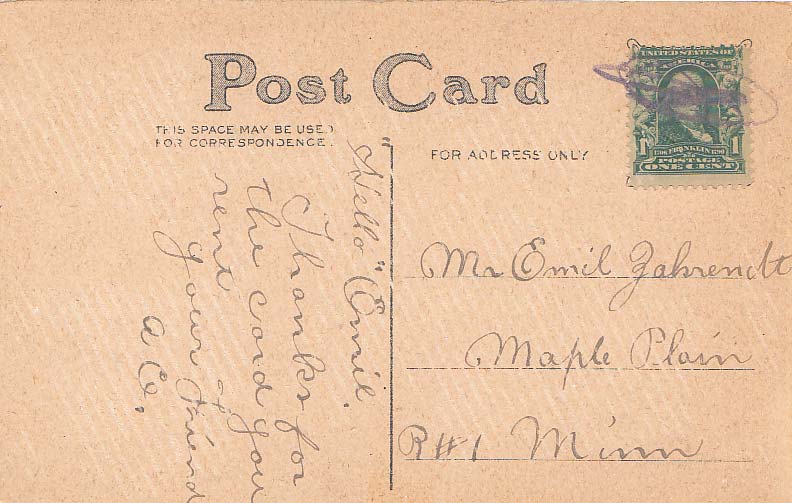 Post Card
THIS SPACE MAY BE USED
FOR CORRESPONDENCE.
FOR ADDRESS ONLY
UNITED STATES OF
AMERICA
1 FRANKLIN 1
POSTAGE
ONE CENT
"Hello" Emil.
Thanks for
the card you
rent
your Friend
a Co.
Mr Emil Zahrendt
Maple Plain
R#1 Minn